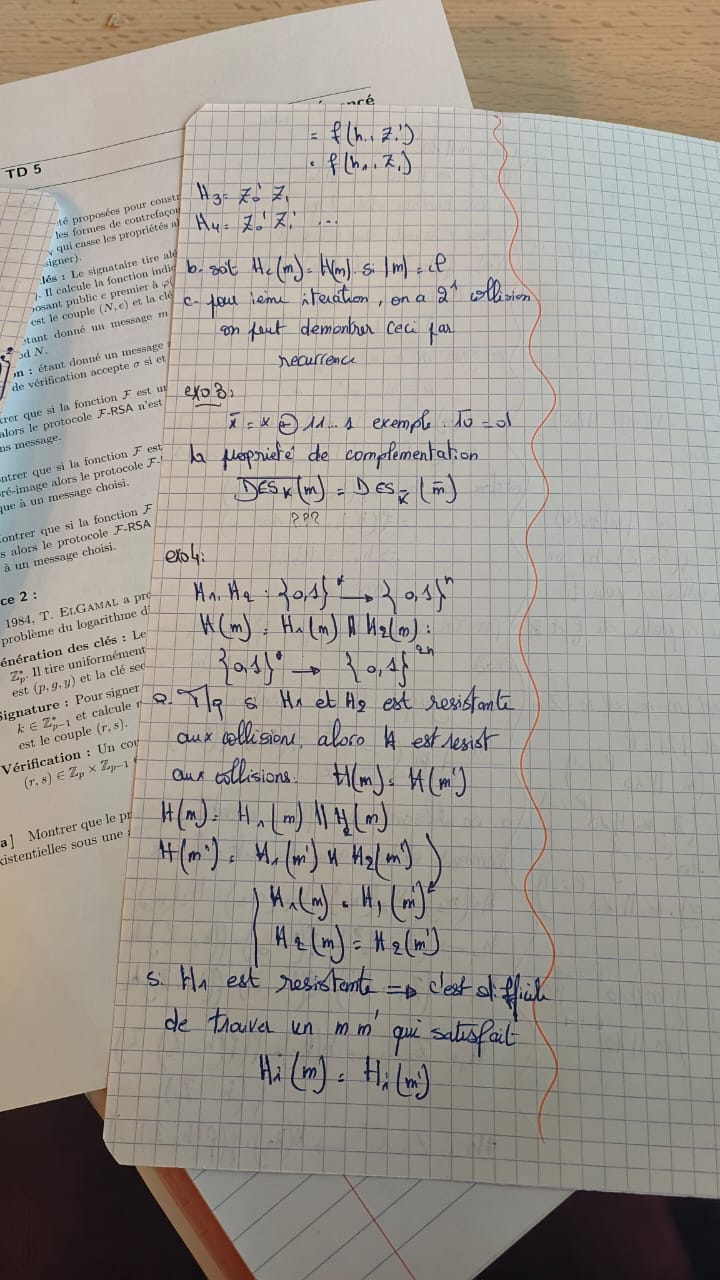 TD 5
té proposées pour constr
les formes de contrefaçon
qui casse les propriétés a
signer).
lés : Le signataire tire alé
. Il calcule la fonction indic
posant public e premier à φ(
est le couple (N, e) et la clé
étant donné un message m
od N.
m : étant donné un message
de vérification accepte σ si et
trer que si la fonction F est un
alors le protocole F-RSA n'est
ns message.
ntrer que si la fonction F est
ré-image alors le protocole F-
que à un message choisi.
ontrer que si la fonction F
s alors le protocole F-RSA
à un message choisi.
ce 2 :
1984, T. ELGAMAL a pro
problème du logarithme d
énération des clés : Le
Z*p. Il tire uniformément
est (p, g, y) et la clé sec
Signature : Pour signer
k ∈ Z*p−1 et calcule r
est le couple (r, s).
Vérification : Un cou
(r, s) ∈ Zp × Zp−1
a] Montrer que le pr
xistentielles sous une
= f(h1, Z1')
= f(h1, Z1)
H3 = Z0' Z1
H4 = Z0' Z1' ...
b. soit Hc(m) = H(m) si |m| = l
c. pour ième iteration, on a 2^i collision
on peut demontrer ceci par
recurrence
exo 3:
x̄ = x ⊕ 11...1 exemple
la proprieté de complementation
DES_K(m) = DES_K̄(m̄)
???
exo4:
H1, H2 : {0,1}* → {0,1}^n
H(m) = H1(m) || H2(m) :
{0,1}* → {0,1}^2n
a. T/q si H1 et H2 est resistante
aux collisions, alors H est resist
aux collisions. H(m) = H(m')
H(m) = H1(m) || H2(m)
H(m') = H1(m') || H2(m')
H1(m) = H1(m')
H2(m) = H2(m')
si H1 est resistante => c'est difficile
de trouver un m m' qui satisfait
Hi(m) = Hi(m')